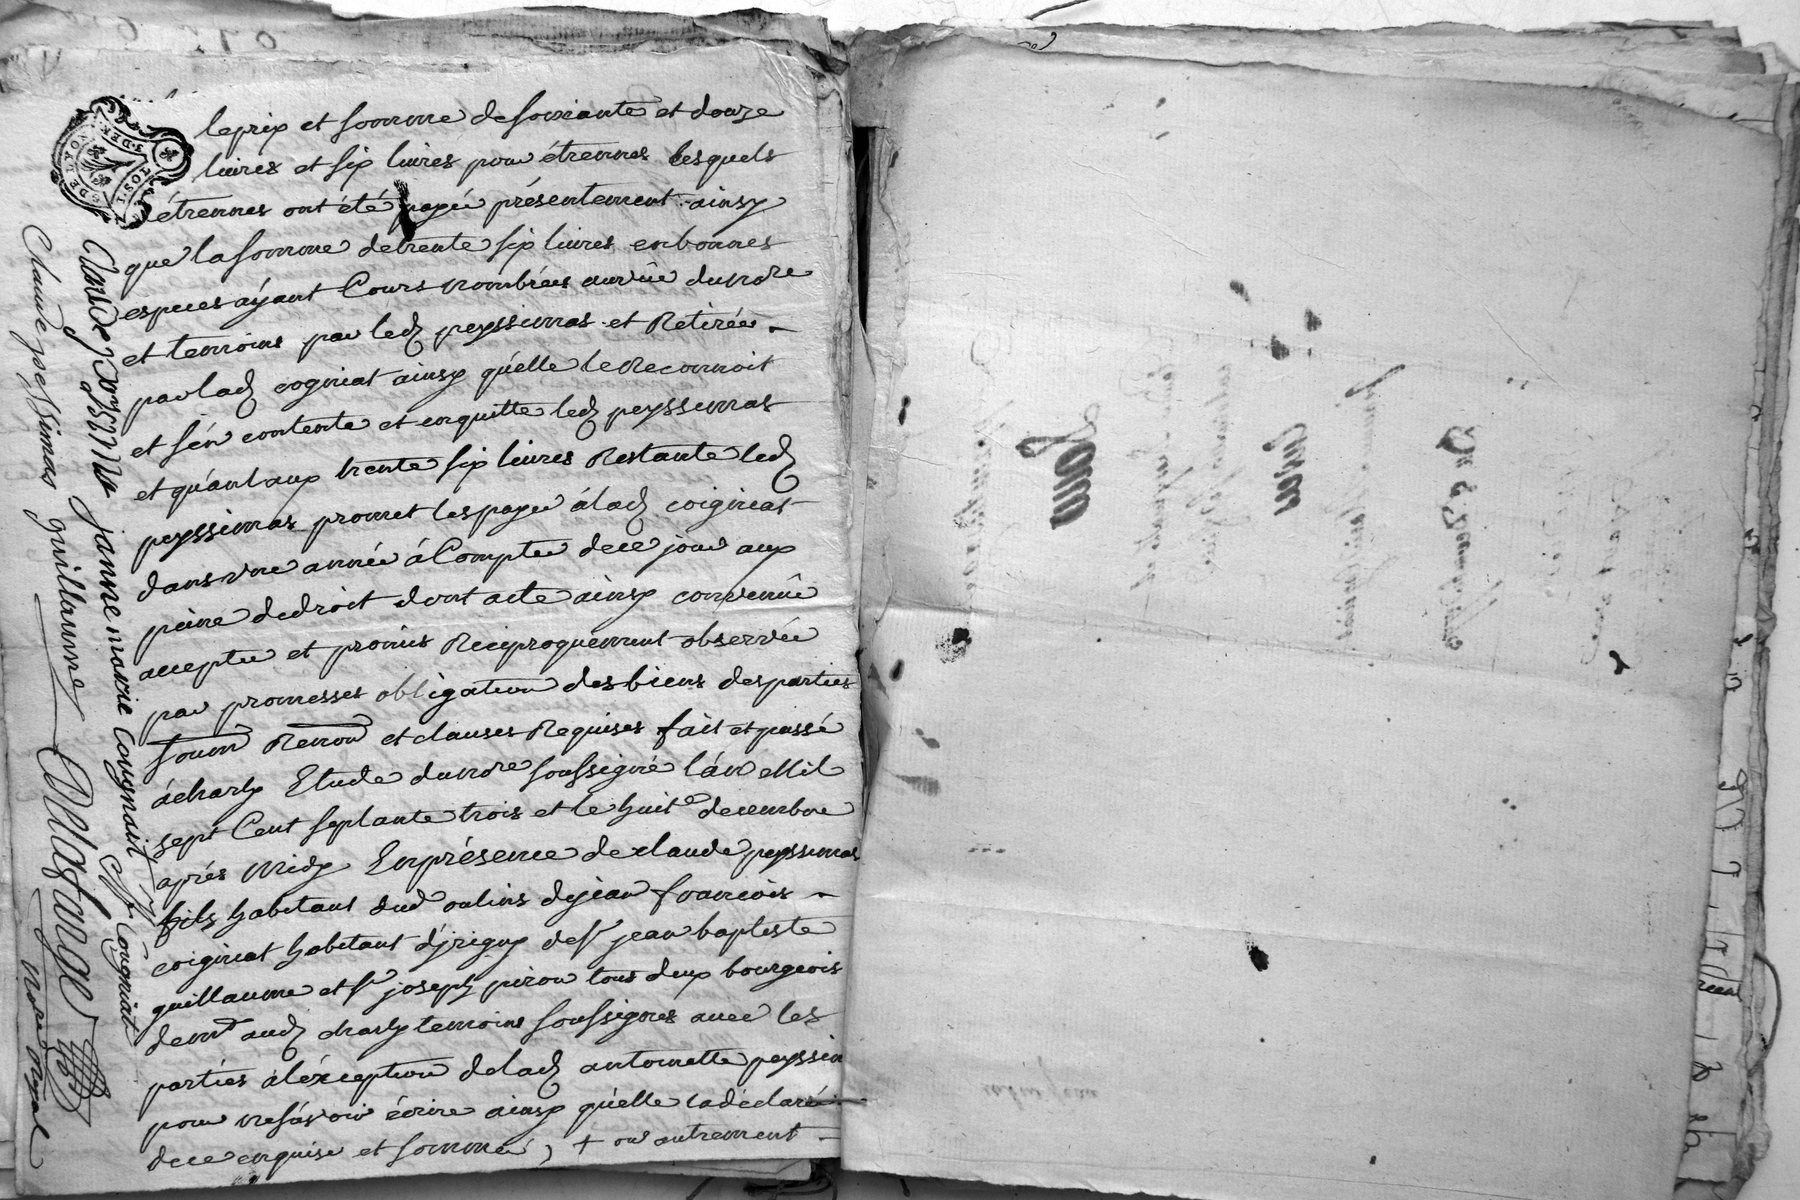 le prix et somme de soixante et douze
livres et six livres pour étrennes lesquels
étrennes ont été payée présentement ainsy
que la somme de trente six livres en bonnes
especes ayant Cours nombrées au vüe du nore
et temoins par ledt peyssimas et Retirée
par ladt cogniat ainsy qu'elle le Reconnoit
et s'en contente et en quitte ledt peyssimas
et quánt aux trente six livres Restante ledt
peyssimas promet les payer á ladt coigniat
dans une année á Compter de ce jour aux
peine de droit dont acte ainsy convenüe
acceptée et promis Reciproquement observée
par promesses obligation des biens des parties
soum Renon et clauses Requises fait et passé
á charly Etude du nore soussigné l'án Mil
sept Cent septante trois et le huite decembre
aprés Midy En présence de claude peyssimas
fils habitant dud oulins de jean francois
coigniat habitant d'jrigny de sr jean baptiste
guillaume et sr joseph piron tous deux bourgeois
demt audt charly temoins soussignés avec les
parties á léxception de ladt antoinette peyssim
pour ne sávoir écrire ainsy qu'elle la déclaré
de ce enquise et sommé, + ou autrement
janne marie coignairt
Cougniat
Claude peyssimas
guillaume
nore Royal